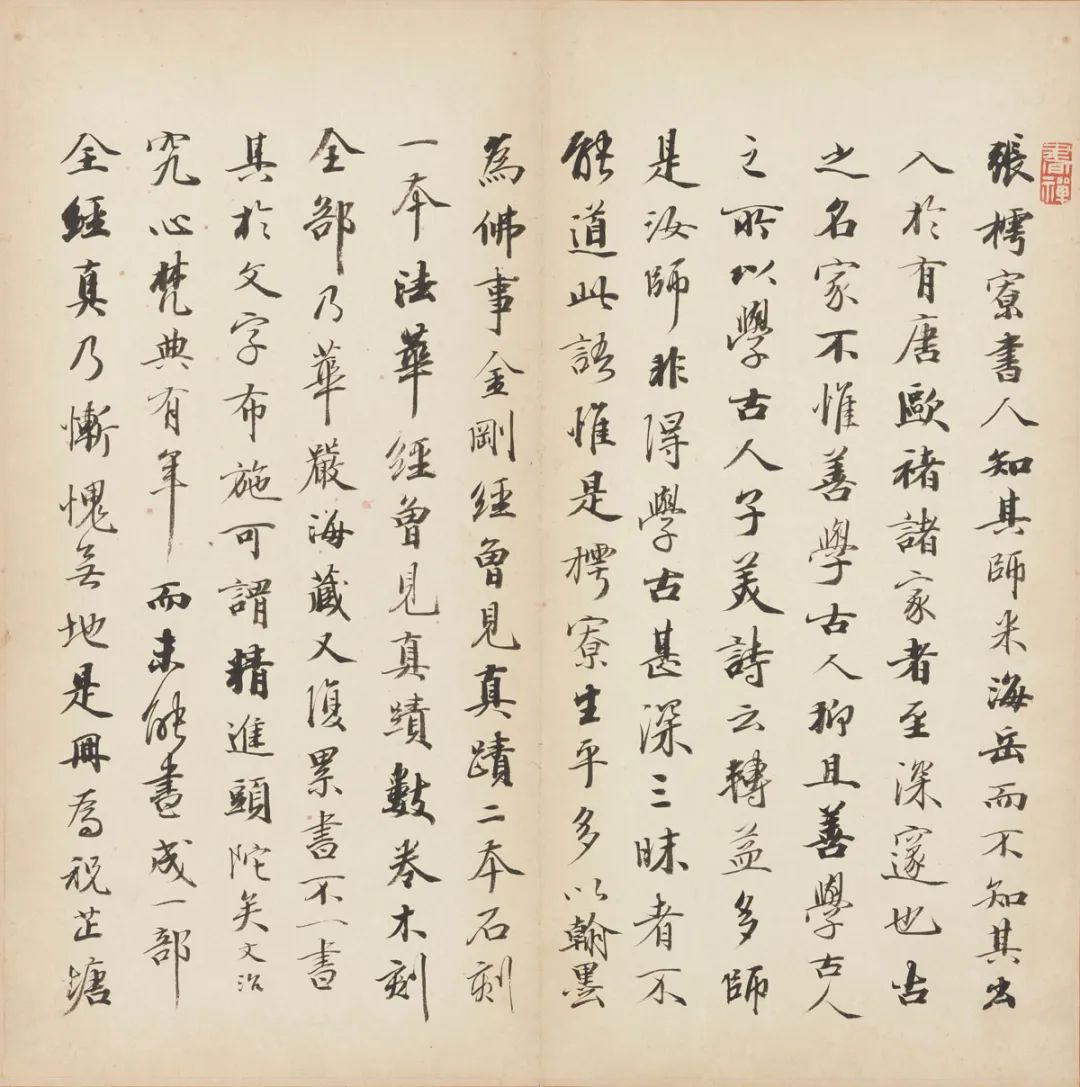 張樗寮書人知其師米海岳而不知其出
入於有唐歐褚諸家者至深邃也古
之名家不惟善學古人抑且善學古人
之所以學古人子美詩云轉益多師
是汝師非得學古甚深三昧者不
能道此語惟是樗寮生平多以翰墨
為佛事金剛經曾見真蹟二本石刻
一本法華經曾見真蹟數卷木刻
全部乃華嚴海藏又復累書不一書
其於文字布施可謂精進頭陀矣文治
究心梵典有年而未能書成一部
全經真乃慚愧無地是冊為祝芷塘